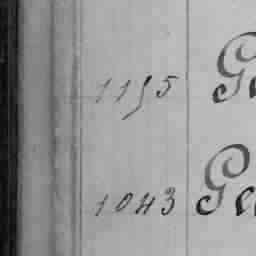 1195 Ge
1043 Ge